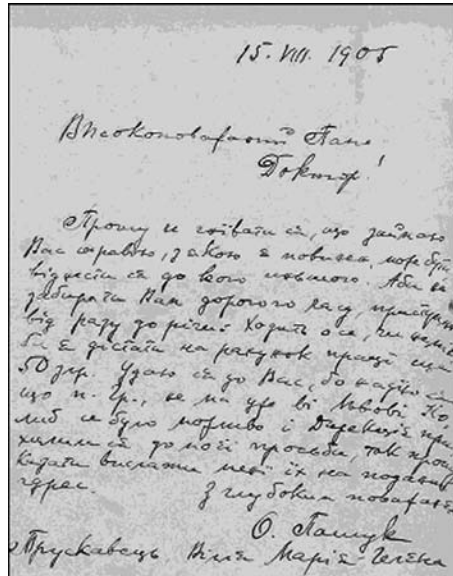 15. VIII. 1905
Високоповажаний Пане
Доктор!
Прошу не гнівати ся, що займаю
Вас справою, з якою я повинна може бути
віднести ся до кого иньшого. Аби не
забирати Вам дорогого часу, приступаю
від разу до річи: Ходить о се, чи
би я дістати на рахунок праці ще
50 зр. Удаю ся до Вас, бо надію ся
що п. Гр., не ма уже ві Львові. Ко-
либ се було можливо і Дирекція при-
хилила ся до моєї просьби, так прошу
Казати вислати мені їх на поданий
адрес.
З глубоким поважанєм
О. Пашук
Трускавець, Вілля Марія-Гелена